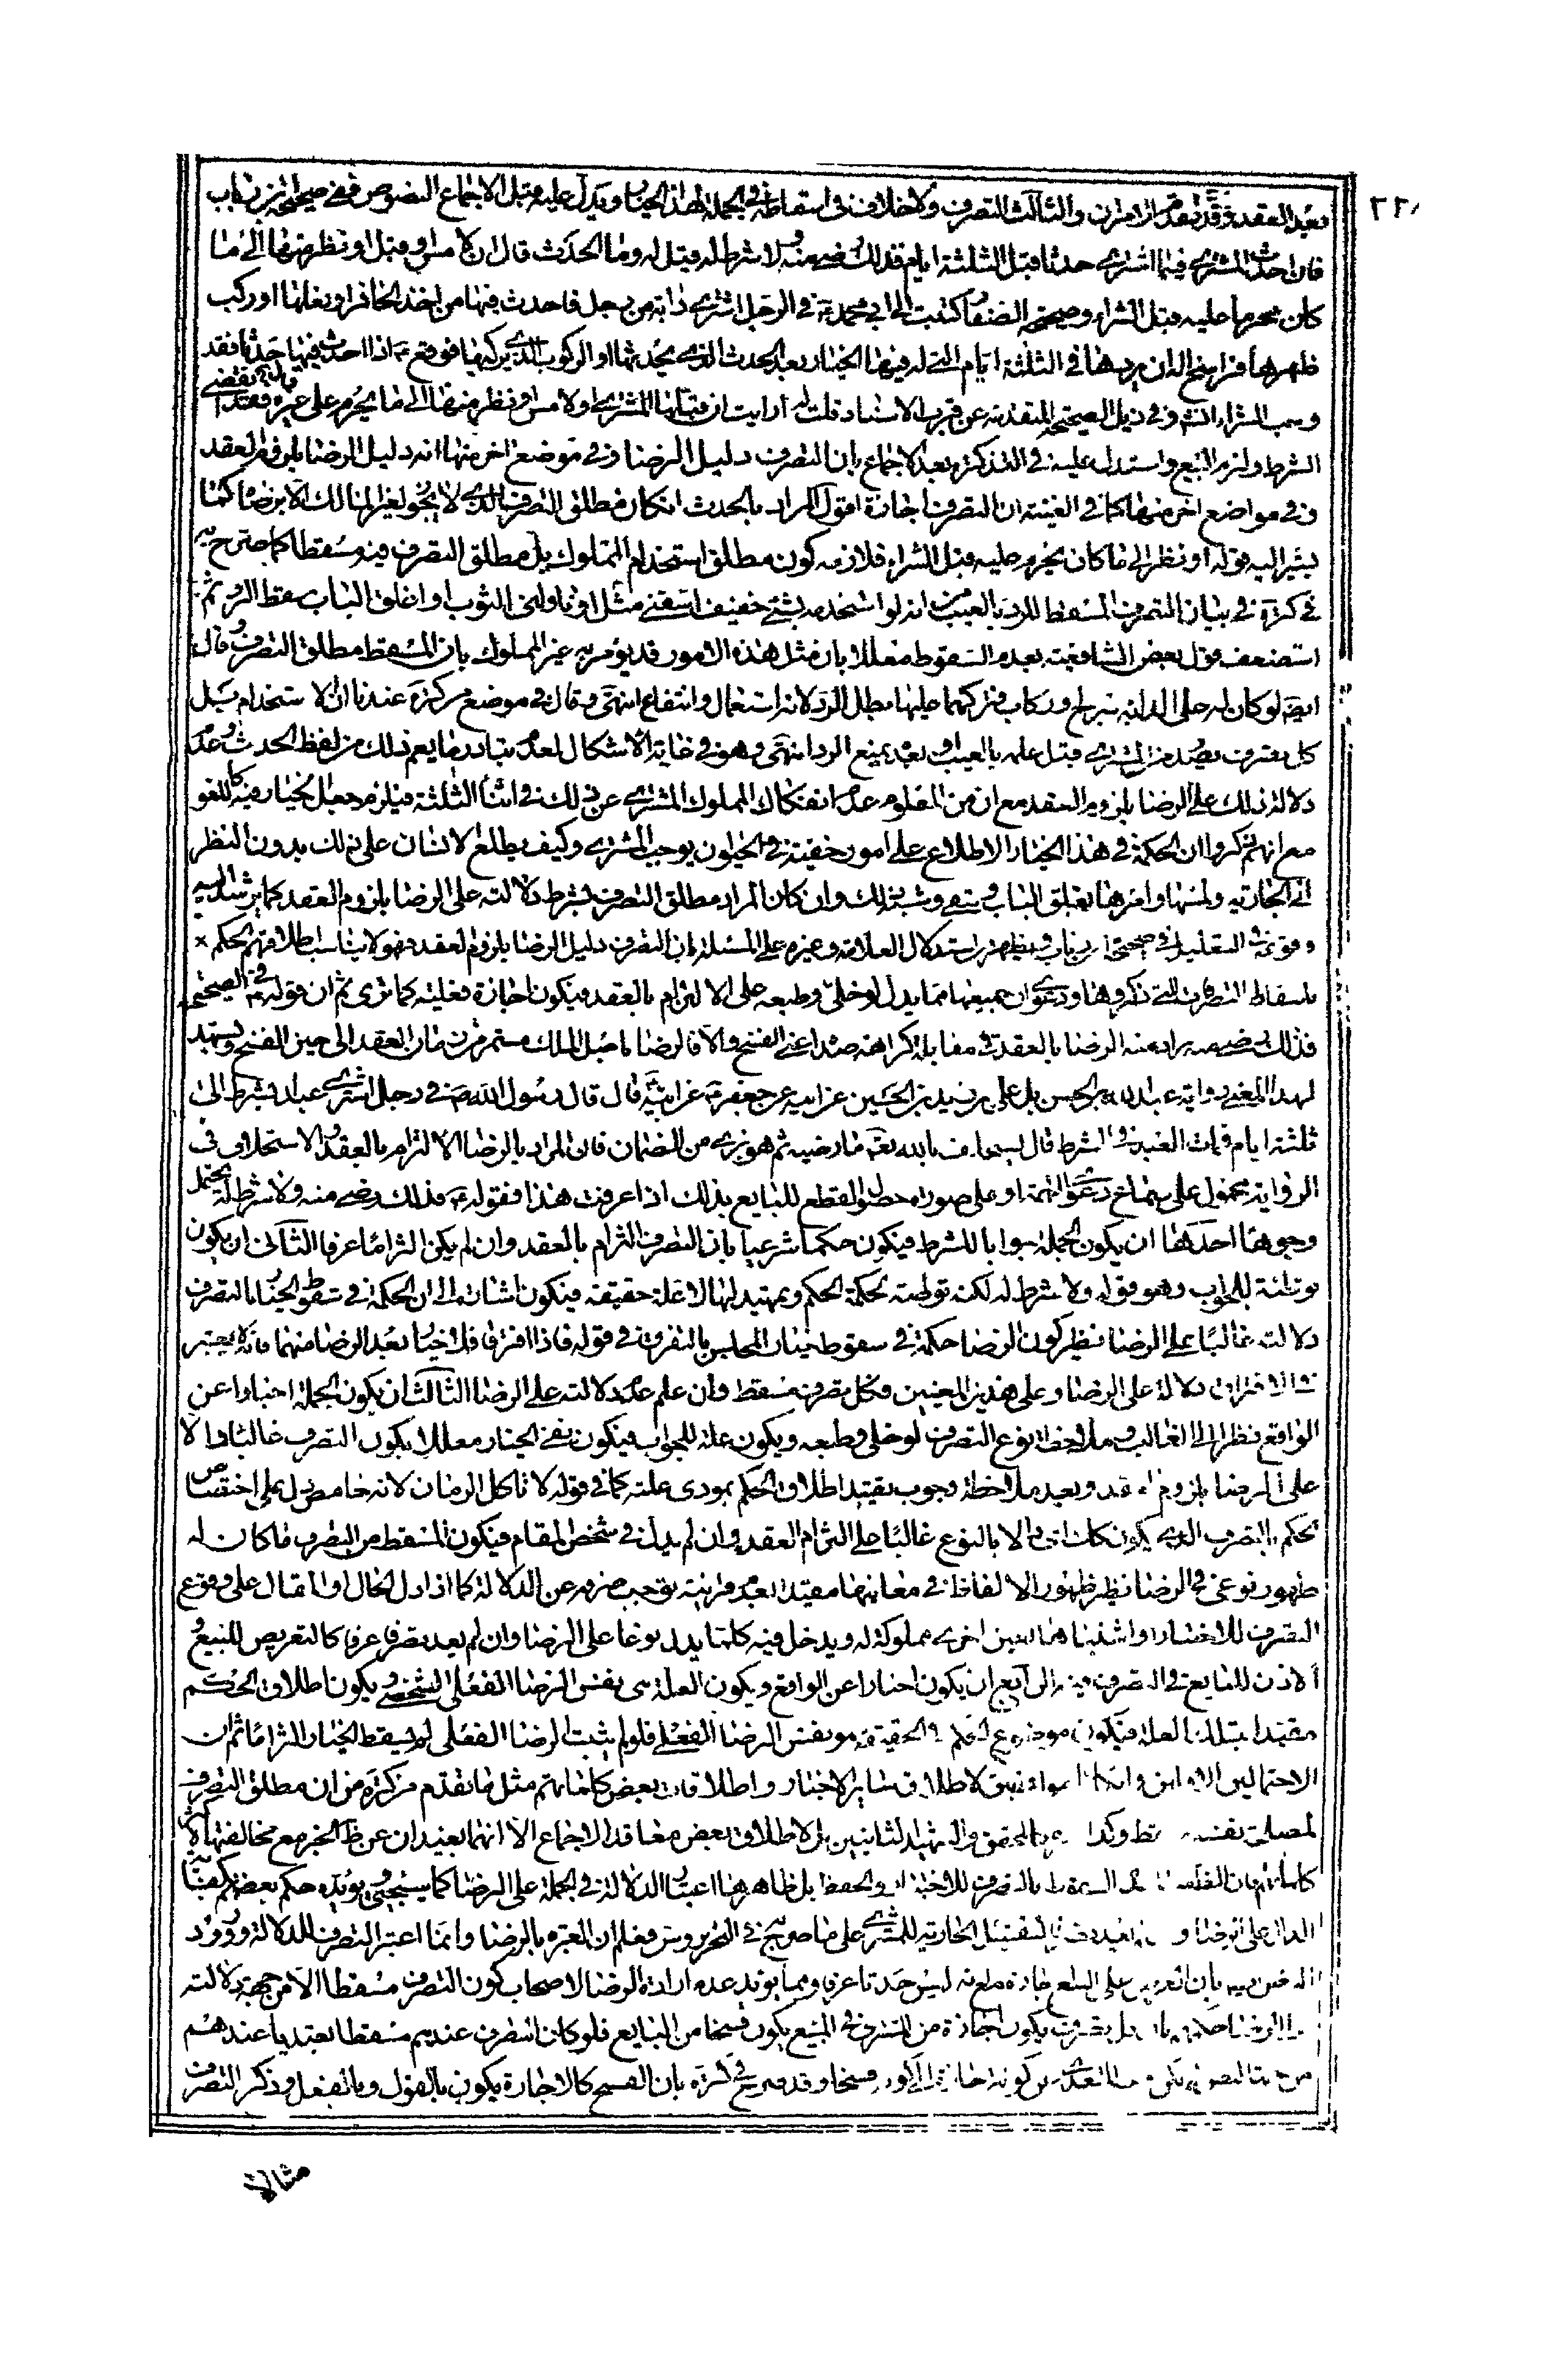 بعد العقد وقد تقدم الامران والثالث التصرف ولا خلاف في اسقاطه في الجملة لهذا الخيار ويدل عليه قبل الاجماع النصوص ففي صحيحة ابن رئاب
فان احدث المشتري فيما اشترى حدثا قبل الثلثة ايام فذلك رضى منه ولا شرط له قيل له وما الحدث قال ان لامس او قبل او نظر منها الى ما
كان محرما عليه قبل الشراء وصحيحة الصفار كتبت الى ابي محمد ع في الرجل اشترى دابة من رجل فاحدث فيها من اخذ الحافر او نعلها او ركب
ظهرها فراسخ اله ان يردها في الثلثة ايام التي له فيها الخيار بعد الحدث الذي يحدثها او الركوب الذي يركبها فوقع ع اذا احدث فيها حدثا فقد
وجب الشراء انش وفي ذيل الصحيحة المتقدمة عن قرب الاسناد قلت له ارايت ان قبلها المشتري او لامس او نظر منها الى ما يحرم على غيره فقد انقضى
الشرط ولزم البيع واستدل عليه في التذكرة بعد الاجماع بان التصرف دليل الرضا وفي موضع اخر منها انه دليل الرضا بلزوم العقد
وفي مواضع اخر منها كما في الغنية ان التصرف اجازة اقول المراد بالحدث ان كان مطلق التصرف الذي لا يجوز لغير المالك الا برضاه كما
يشير اليه قوله او نظر الى ما كان يحرم عليه قبل الشراء فلازمه كون مطلق استخدام المملوك بل مطلق التصرف فيه مسقطا كما صرح به
في كرة في بيان التصرف المسقط للرد بالعيب من انه لو استخدمه بشئ خفيف مثل اسقني او ناولني الثوب او اغلق الباب سقط الرد ثم
استضعف قول بعض الشافعية بعدم السقوط معللا بان مثل هذه الامور قد يؤمر به غير المملوك بان المسقط مطلق التصرف وقال
ايضا لو كان له على الدابة سرج او ركاب فتركهما عليها بطل الرد لانه استعمال وانتفاع انتهى وقال في موضع من كرة عندنا ان الاستخدام بل
كل تصرف يصدر من المشتري قبل علمه بالعيب او بعده يمنع الرد انتهى وهو في غاية الاشكال لعدم تبادر ما يعم ذلك من لفظ الحدث وعدم
دلالة ذلك على الرضا بلزوم العقد مع ان من المعلوم عدم انفكاك المملوك المشترى عن ذلك في اثناء الثلثة فيلزم جعل الخيار فيه كاللغو
مع انهم ذكروا ان الحكمة في هذا الخيار الاطلاع على امور خفية في الحيوان يوجب المشتري وكيف يطلع الانسان على ذلك بدون النظر
الى الجارية ولمسها وامرها بغلق الباب و وشبه ذلك وان كان المراد مطلق التصرف بشرط دلالته على الرضا بلزوم العقد كما يرشد اليه
وقوعه التعليل في صحيحة ابن رئاب ويظهر من استدلال العلامة وغيره على المسئلة بان التصرف دليل الرضا بلزوم العقد فهو لا يناسب اطلاقهم الحكم
باسقاط التصرفات التي ذكروها ودعوى ان جميعها مما يدل لو خلي وطبعه على الالتزام بالعقد فيكون اجازة فعلية كما ترى ثم ان قوله ع في الصحيحة
فذلك رضى منه يراد منه الرضا بالعقد في مقابلة كراهة ضده اعني الفسخ والا فالرضا باصل الملك مستمر من زمان العقد الى حين الفسخ ويشهد
لهذا المعنى رواية عبد الله بن الحسن بن علي بن زيد بن الحسين عن ابيه عن جعفر ع عن ابيه قال قال رسول الله ص في رجل اشترى عبدا بشرط الى
ثلثة ايام فمات العبد في الشرط قال يستحلف بالله تعالى ما رضيه ثم هو بري من الضمان فان المراد بالرضا الالتزام بالعقد والاستحلاف في
الرواية محمول على سماع دعوى التهمة او على صورة حصول القطع للبايع بذلك اذا عرفت هذا فقوله ع فذلك رضى منه ولا شرط له يحتمل
وجوها احدها ان يكون الجملة جوابا للشرط فيكون حكما شرعيا بان التصرف التزام بالعقد وان لم يكن التزاما عرفا الثاني ان يكون
توطئة للجواب وهو قوله ولا شرط له لكنه توطئة لحكمة الحكم وتمهيد لها لا علة حقيقة فيكون اشارة الى ان الحكمة في سقوط الخيار بالتصرف
دلالته غالبا على الرضا نظير كون الرضا حكمة في سقوط خيار المجلس بالتفرق في قوله فاذا افترقا فلا خيار بعد الرضا منهما فانه لا يعتبر
في الافتراق دلالة على الرضا وعلى هذين المعنيين فكل تصرف مسقط وان علم عدم دلالته على الرضا الثالث ان يكون الجملة اخبارا عن
الواقع نظرا الى الغالب وملاحظة نوع التصرف لو خلي وطبعه ويكون علة للجواب فيكون نفي الخيار معللا بكون التصرف غالبا دالا
على الرضا بلزوم العقد وبعد ملاحظة وجوب تقييد اطلاق الحكم بمودى علته كما في قوله لا تاكل الرمان لانه حامض دل على اختصاص
الحكم بالتصرف الذي يكون كذلك اي دالا بالنوع غالبا على التزام العقد وان لم يدل في شخص المقام فيكون المسقط من التصرف ما كان له
ظهور نوعي في الرضا نظير ظهور الالفاظ في معانيها مقيدا بعدم قرينة يوجب صرفه عن الدلالة كما اذا دل الحال او المقال على وقوع
التصرف للاختبار او اشتباها بعين اخرى مملوكة له ويدخل فيه كلما يدل نوعا على الرضا وان لم يعد تصرفا عرفا كالتعريض للبيع و
الاذن للبايع في التصرف فيه الرابع ان يكون اخبارا عن الواقع ويكون العلة هي نفس الرضا الفعلي الشخصي ويكون اطلاق الحكم
مقيدا بتلك العلة فيكون موضوع الحكم في الحقيقة هو نفس الرضا الفعلي فلو لم يثبت الرضا الفعلي لم يسقط الخيار التزاما ثم ان
الاحتمالين الاولين وان كانا لاطلاق سائر الاخبار واطلاقات بعض كلماتهم مثل ما تقدم من كرة من ان مطلق التصرف
لمصلحة نفسه مسقط وكذا غيره كالمحقق والشهيد الثانيين بل لاطلاق بعض معاقد الاجماع الا انهما بعيدان عن ظ الخبر مع مخالفتهما لاكثر
كلماتهم فان الظاهر منهم عدم السقوط بالتصرف للاختبار والحفظ بل ظاهرهما اعتبار الدلالة في الجملة على الرضا كما سيجئ ويؤيده حكم بعضهم بكفاية
الدال على الرضا وان لم يعد تصرفا كتقبيل الجارية للمشتري على ما صرح في التحرير وس فعلم ان العبرة بالرضا وانما اعتبر التصرف للدلالة وورود
النص فيه بان العرض على البيع اجازة مع انه ليس حدثا عرفا ومما يؤيد عدم ارادة الاصحاب كون التصرف مسقطا الا من جهة دلالته
على الرضا حكمهم بان كل تصرف يكون اجازة من المشتري في المبيع يكون فسخا من البايع فلو كان التصرف عندهم مسقطا تعبديا عندهم
من جهة النص لم يكن وجه للتعدي عن كونه اجازة الى كونه فسخا وقد صرح في كرة بان الفسخ كالاجازة يكون بالقول وبالفعل وذكر التصرف
مثالا